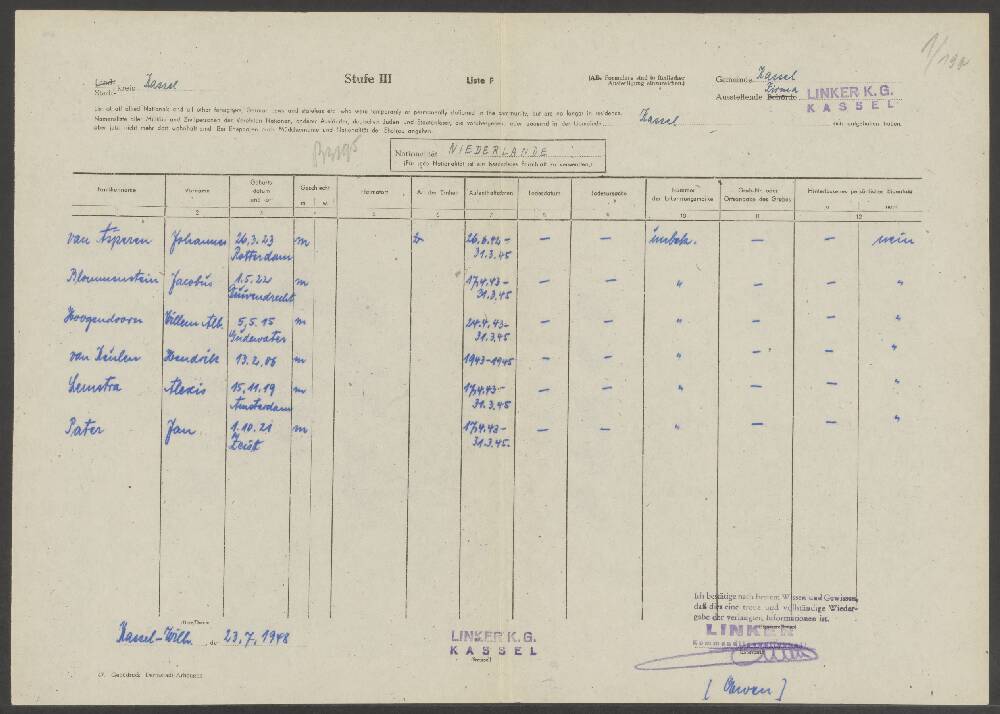 1/190
Stufe III
Liste F
(Alle Formulare sind in fünffacher Ausfertigung einzureichen)
Land-
Stadt- kreis Kassel
Gemeinde Kassel
Ausstellende Behörde Firma LINKER K. G.
KASSEL
List of all allied Nationals and all other foreigners, German Jews and stateless etc. who were temporarily or permanently stationed in the community, but are no longer in residence.
Namensliste aller Militär- und Zivilpersonen der Vereinten Nationen, anderer Ausländer, deutscher Juden und Staatenloser, die vorübergehend oder dauernd in der Gemeinde Kassel sich aufgehalten haben,
aber jetzt nicht mehr dort wohnhaft sind. Bei Ehepaaren auch Mädchenname und Nationalität der Ehefrau angeben.
Nationalität NIEDERLANDE
(Für jede Nationalität ist ein besonderes Formblatt zu verwenden.)
Familienname Vorname Geburts datum und -ort Geschlecht m w Heimatort Art der Einheit Aufenthaltsdaten Todesdatum Todesursache Nummer der Erkennungsmarke Grab-Nr. oder Ortsangabe des Grabes Hinterlassenes persönliches Eigentum ja nein
2 3 4 5 6 7 8 9 10 11 12
van Asperen Johannes 26.3.23 m 26.6.42 - — — unbek. — — nein
Rotterdam 31.3.45
Blommenstein Jacobus 1.5.22 m 17.4.43 - — — " — — "
Duivendrecht 31.3.45
Hoogendoorn Willem Alb. 5.5.15 m 24.4.43 - — — " — — "
Oudewater 31.3.45
van Keulen Hendrik 13.2.06 m 1943-1945 — — " — — "
Lemstra Alexis 15.11.19 m 17.4.43 - — — " — — "
Amsterdam 31.3.45
Pater Jan 1.10.21 m 17.4.43 - — — " — — "
Zeist 31.3.45.
Ich bestätige nach bestem Wissen und Gewissen,
daß dies eine treue und vollständige Wieder-
gabe der verlangten Informationen ist.
Kassel-Wilh. de 23.7.1948
LINKER K. G.
KASSEL
LINKER
Kommanditgesellschaft